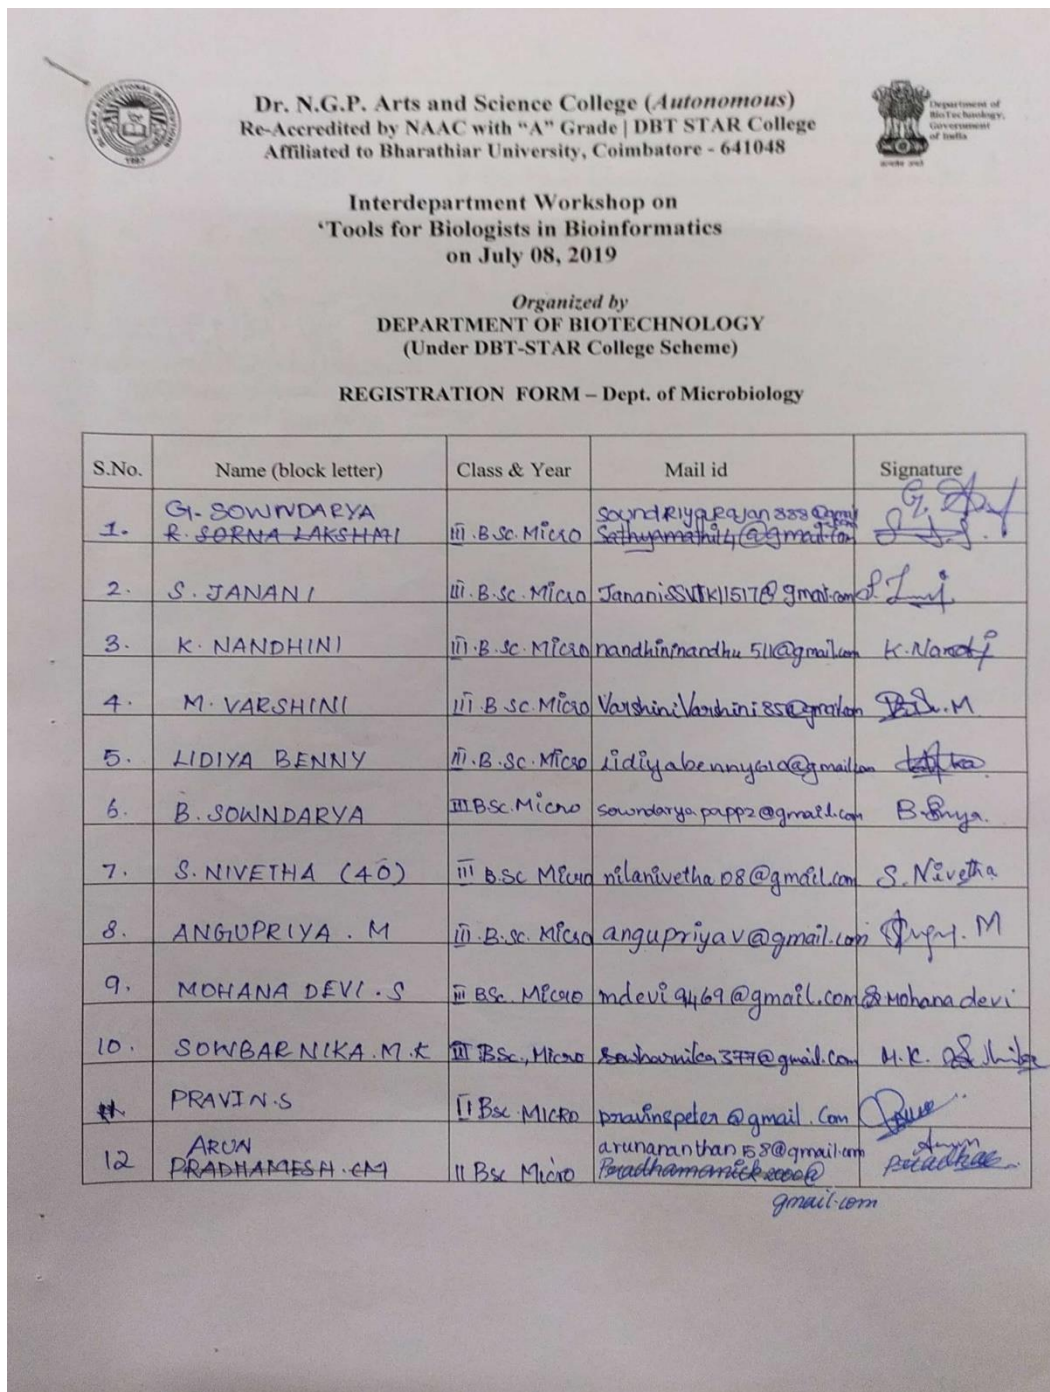 Dr. N.G.P. Arts and Science College (Autonomous)
Re-Accredited by NAAC with “A” Grade | DBT STAR College
Affiliated to Bharathiar University, Coimbatore - 641048
Department of
BioTechnology,
Government
of India
Interdepartment Workshop on
‘Tools for Biologists in Bioinformatics
on July 08, 2019
Organized by
DEPARTMENT OF BIOTECHNOLOGY
(Under DBT-STAR College Scheme)
REGISTRATION FORM – Dept. of Microbiology
S.No. Name (block letter) Class & Year Mail id Signature
G. SOWNDARYA soundRiyaRajan888@gmail
1. R. SORNA LAKSHMI III.B.Sc.Micro Sathyamathi14@gmail.com
2. S. JANANI III.B.Sc.Micro JananiSSVTK11517@gmail.com
3. K. NANDHINI III.B.Sc.Micro nandhininandhu511@gmail.com K.Nandi
4. M. VARSHINI III.B.Sc.Micro VarshiniVarshini85@gmail.com
5. LIDIYA BENNY III.B.Sc.Micro lidiyabenny610@gmail.com
6. B. SOWNDARYA III BSc.Micro sowndarya.papp2@gmail.com
7. S. NIVETHA (40) III B.Sc Micro nilanivetha08@gmail.com S. Nivetha
8. ANGUPRIYA . M III.B.Sc.Micro angupriyav@gmail.com
9. MOHANA DEVI . S III BSc. Micro mdevi9469@gmail.com Mohana devi
10. SOWBARNIKA.M.K III BSc., Micro sowbarnika377@gmail.com M.K.
11. PRAVIN.S II Bsc MICRO pravinspeter@gmail.com
ARUN arunananthan58@gmail.com Arun
12 PRADHAMESH.CM II Bsc Micro Pradhamanick2000@
gmail.com